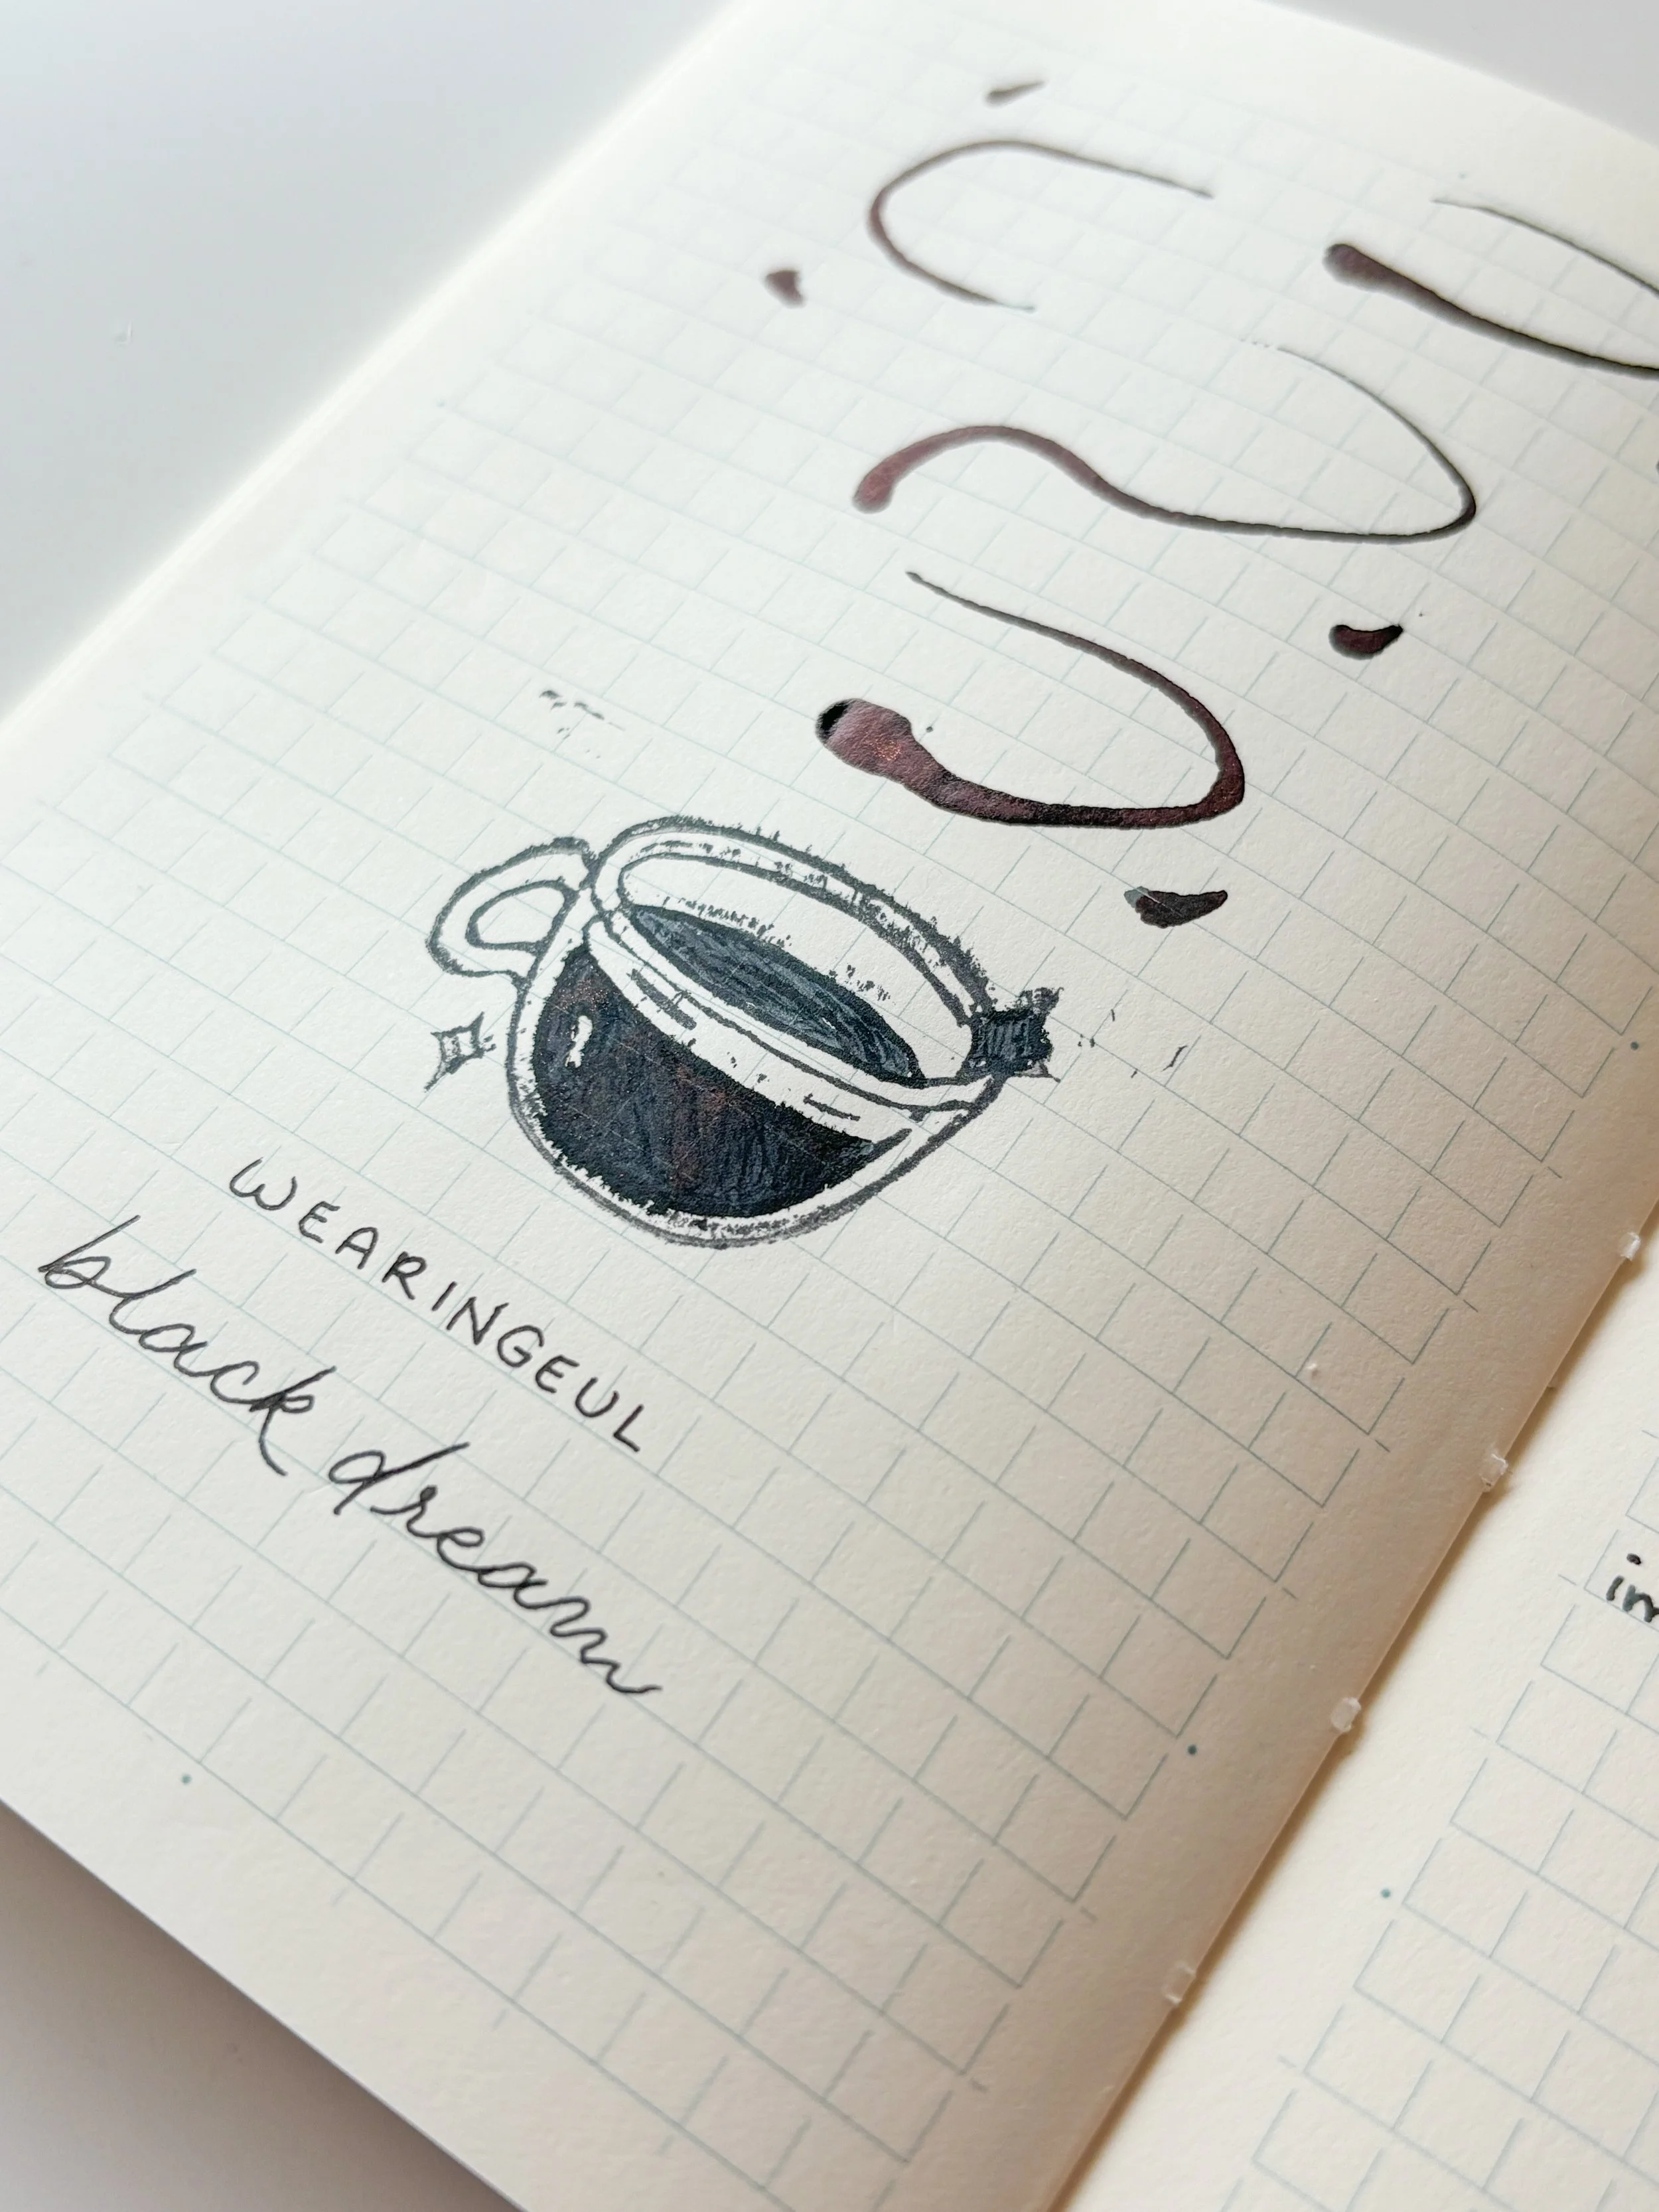 WEARINGEUL
black dream
im